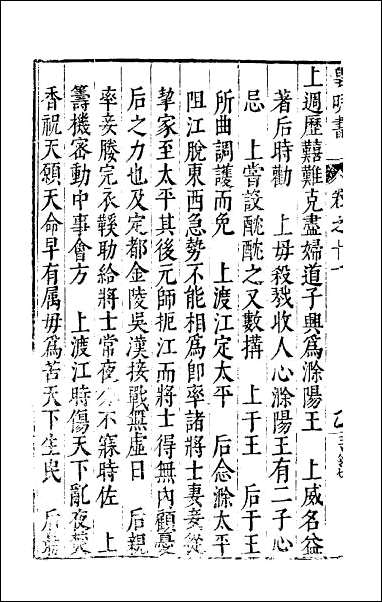 皇明書 卷之十一
上週歷囏難克盡婦道子興爲滁陽王　上威名益
著后時勸　上毋殺戮收人心滁陽王有二子心
忌　上嘗設酖酖之又數搆　上于王　后于王
所曲調護而免　上渡江定太平　后念滁太平
阻江脫東西急勢不能相爲卽率諸將士妻妾從
挈家至太平其後元師扼江而將士得無內顧憂
后之力也及定都金陵吳漢接戰無虛日　后親
率妾媵完衣鞵助給將士常夜分不寐時佐　上
籌機宻動中事會方　上渡江時傷天下亂夜焚
香祝天願天命早有属毋爲苦天下生民　后